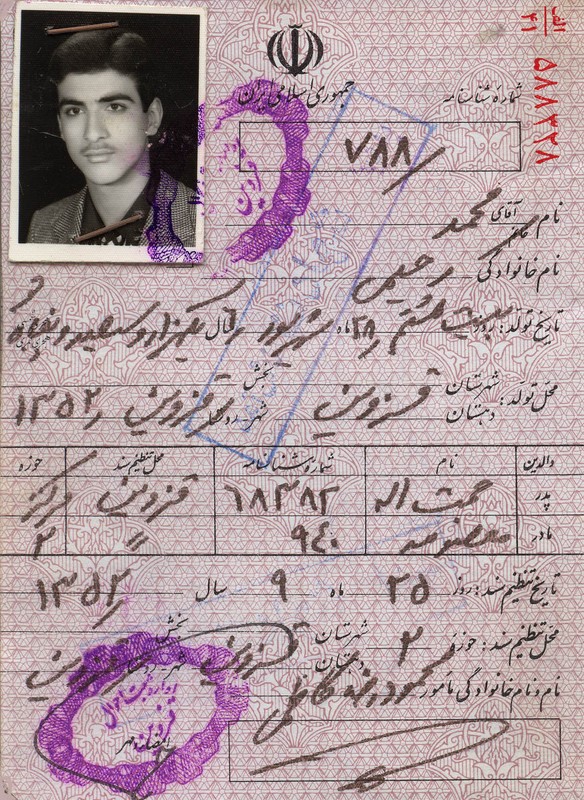 الف
۲۱
۵۸۸۳۲۸
جمهوری اسلامی ایران
شمارهٔ شناسنامه
۷۸۸
نام آقای خانم محمد
نام خانوادگی رحیمی
تاریخ تولد: روز بیست هشتم ۲۸ ماه شهریور سال یکهزار و سیصد و پنجاه و
محل تولد: شهرستان دهستان قزوین بخش شهر قزوین ۱۳۵۲
والدین نام شمارهٔ شناسنامه محل تنظیم سند حوزه
پدر حمت اله ۶۸۳۸۲ قزوین مرکز
مادر معصومه ۹۴۰ 〃 ۲
تاریخ تنظیم سند: روز ۲۵ ماه ۹ سال ۱۳۵۲
محل تنظیم سند: حوزه ۲ شهرستان دهستان قزوین بخش شهر قزوین
نام و نام خانوادگی مامور محمود
امضاء و مهر
اداره ثبت احوال قزوین